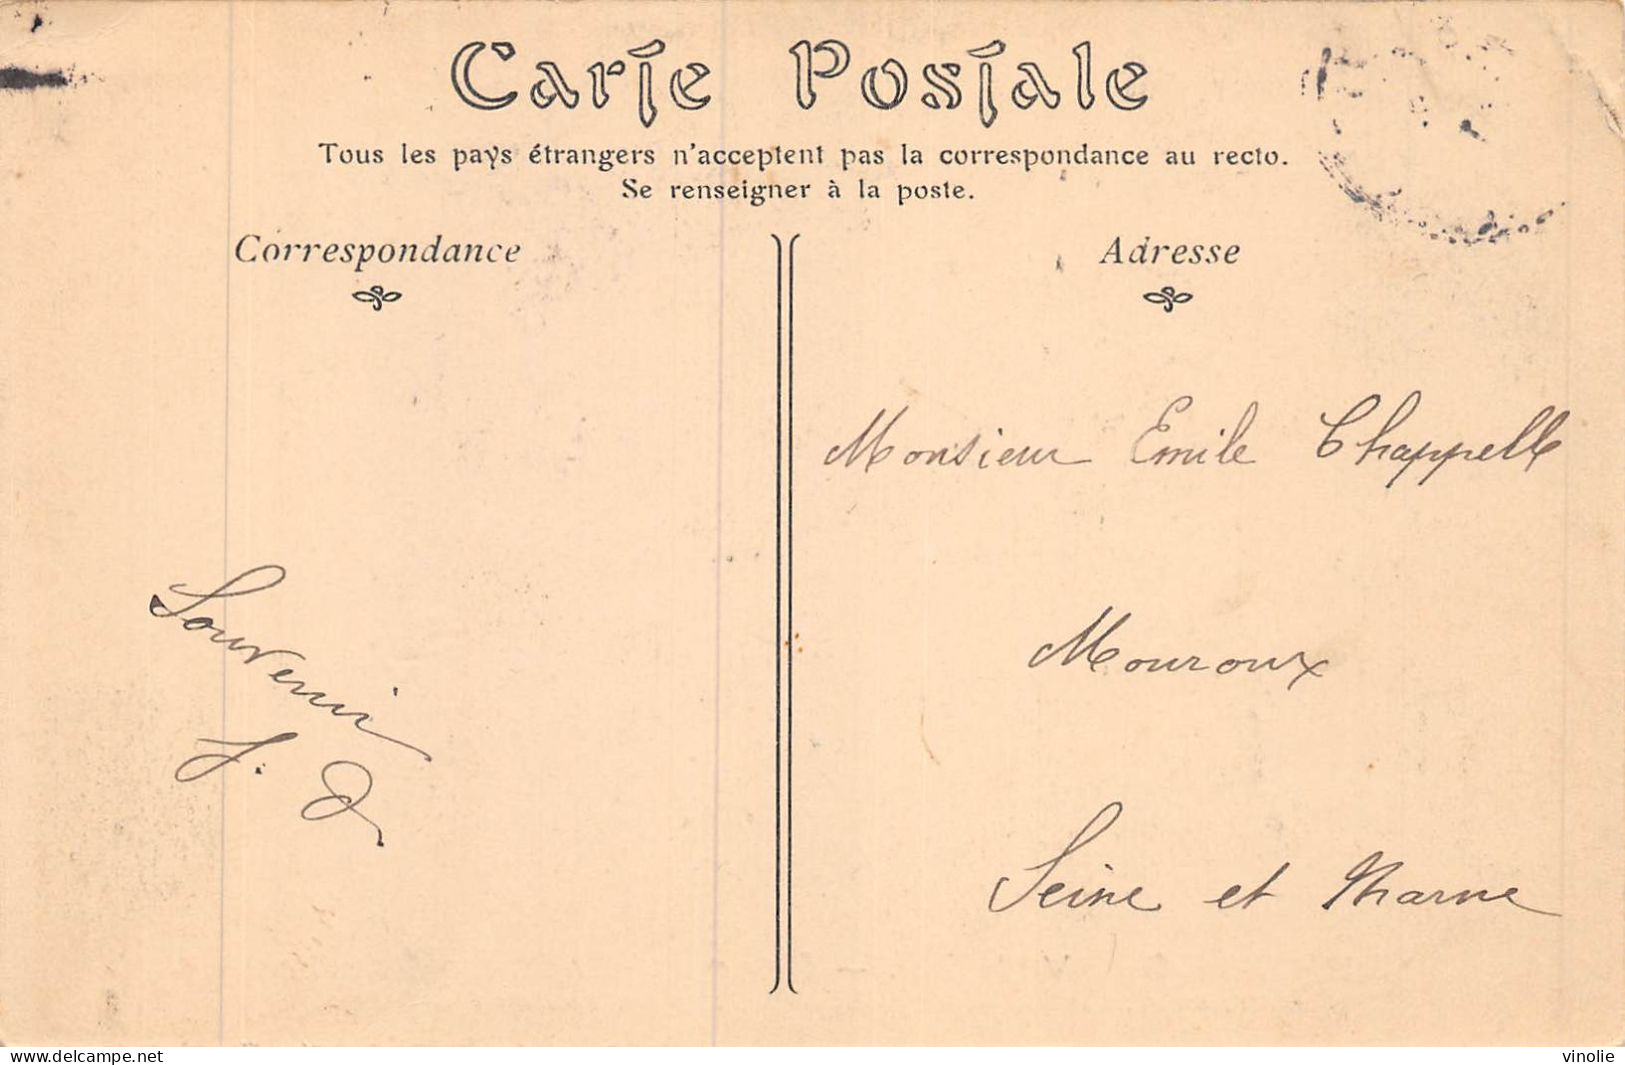 Carte Postale
Tous les pays étrangers n'acceptent pas la correspondance au recto.
Se renseigner à la poste.
Correspondance
Adresse
Souvenir
J. D
Monsieur Emile Chappelle
Mouroux
Seine et Marne
delcampe.net
vinolie